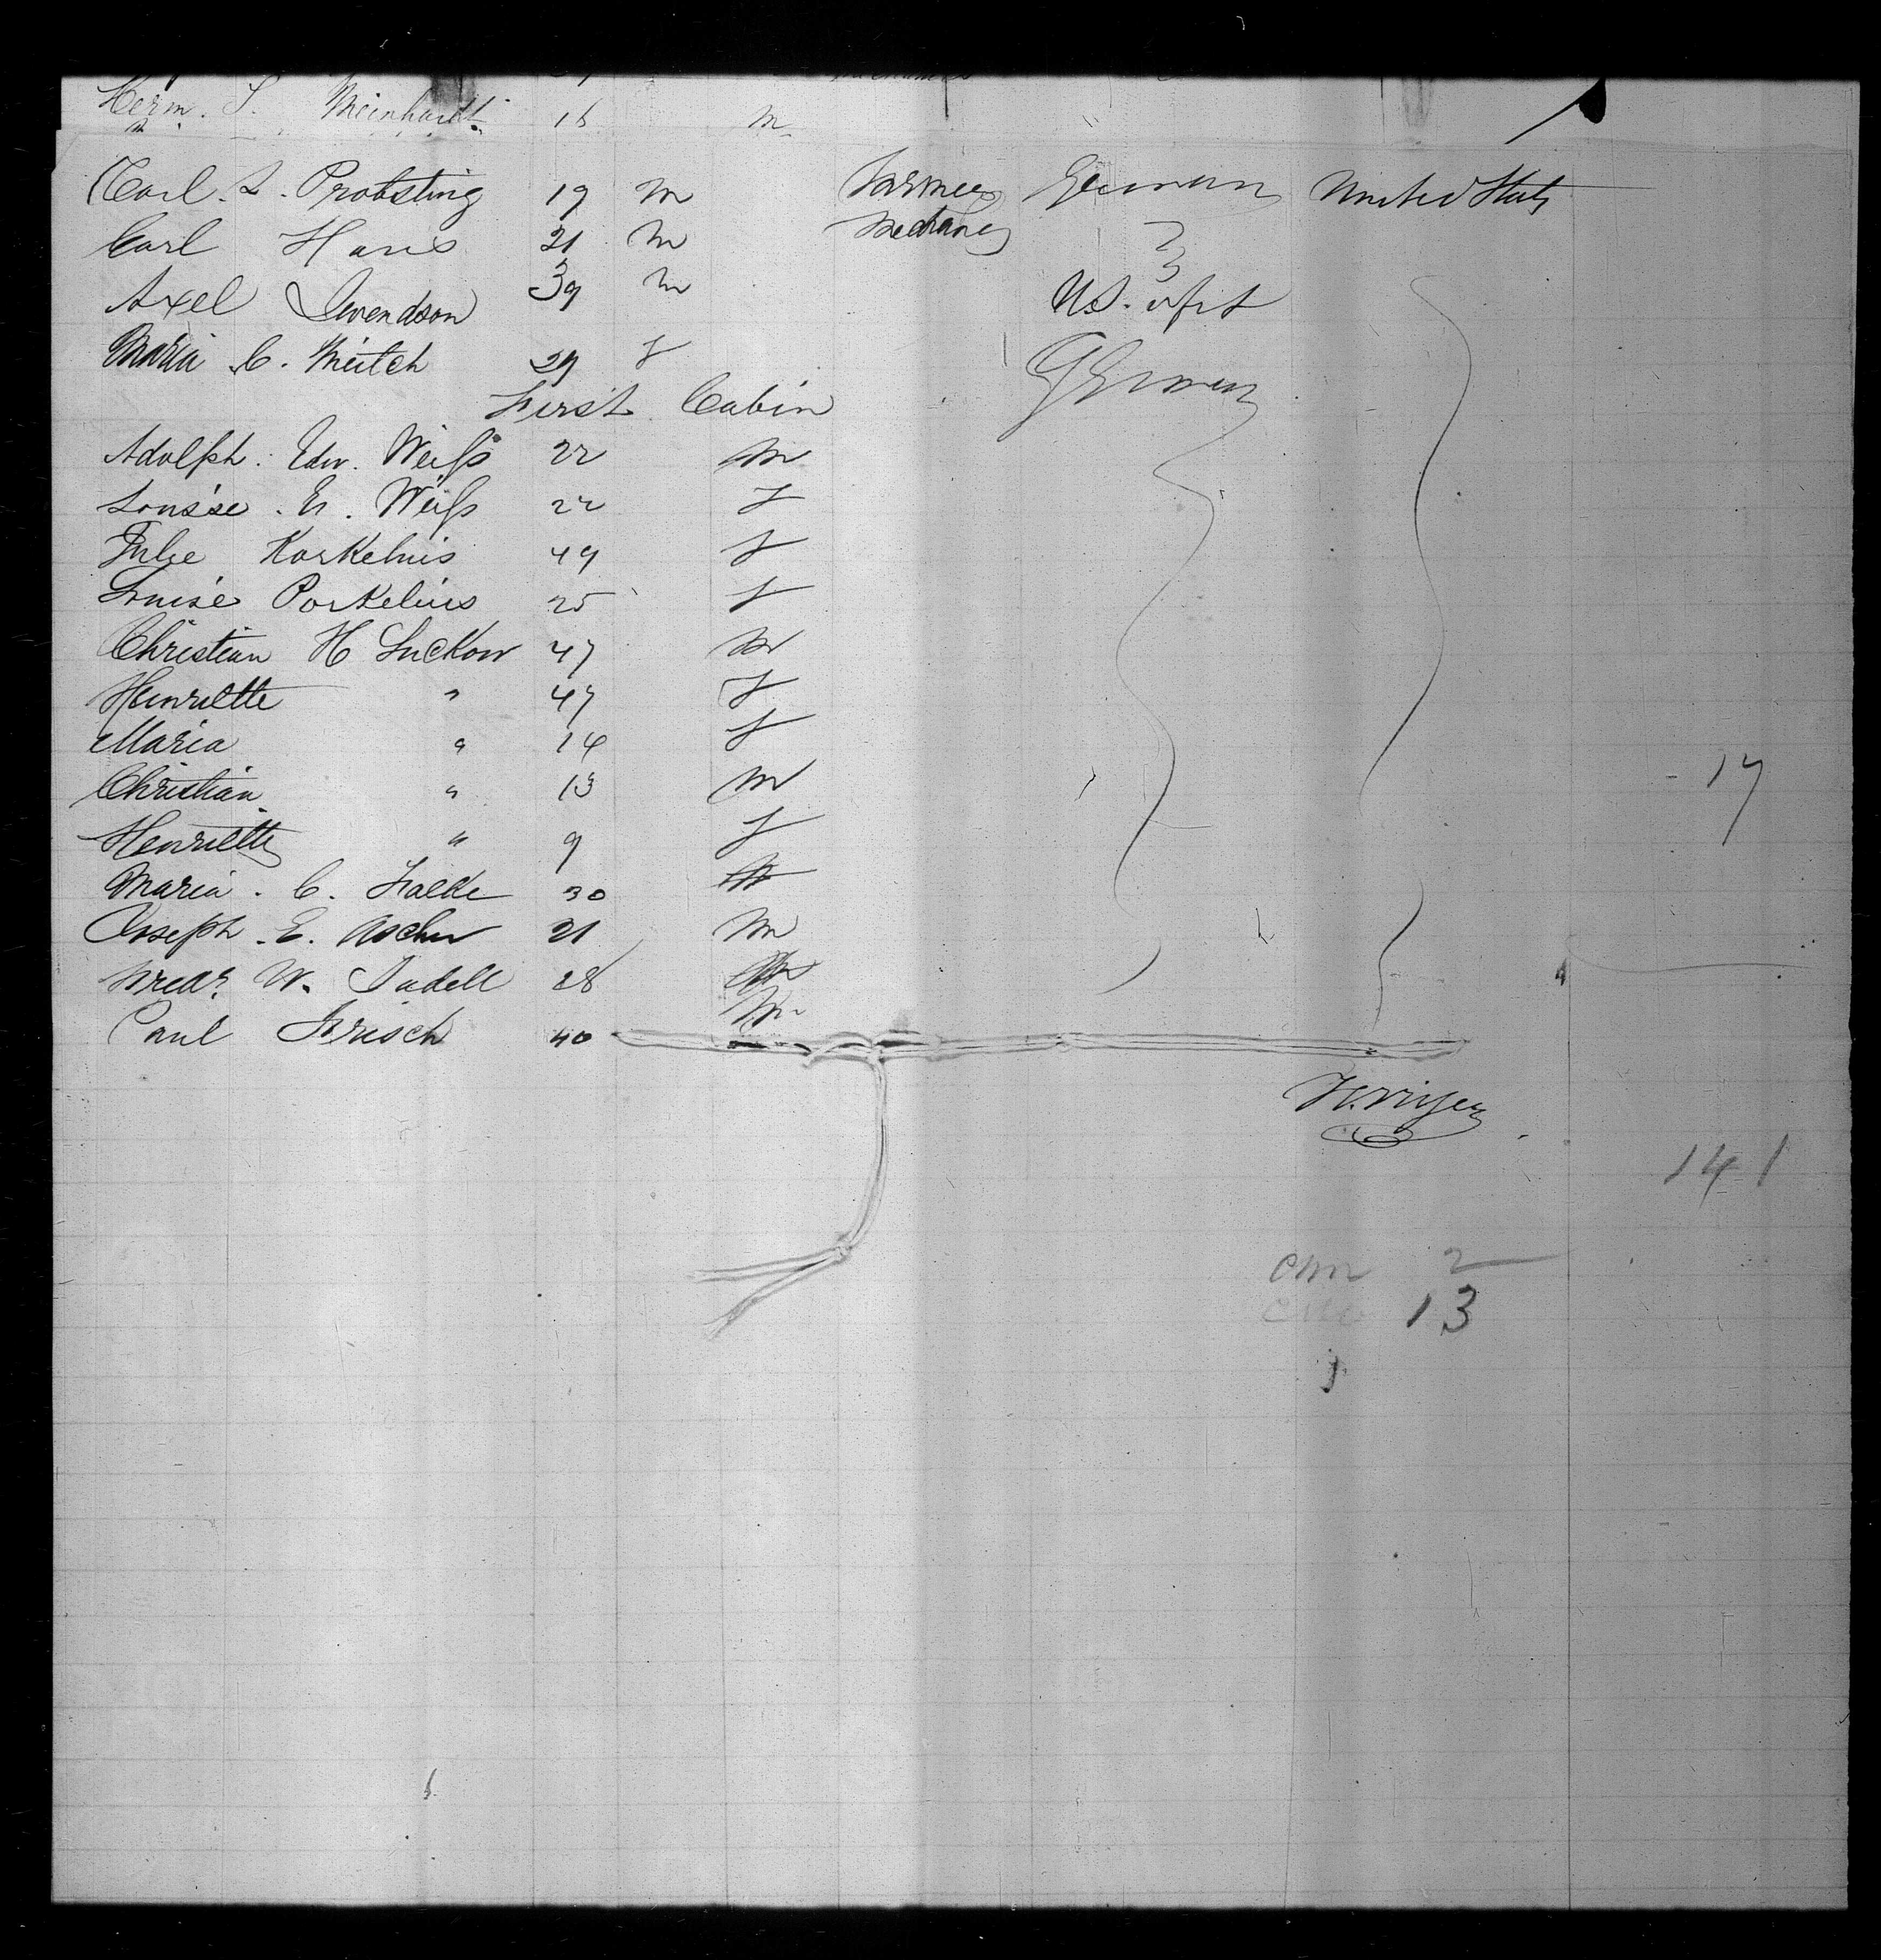 Herm. S. Meinhardt 16 m
Carl. L. Probsting 19 m Farmer German United States
Carl Hans 21 m Mechanic
Axel Swendson 39 m U.S. of
Maria C. Meitch 29 f German
First Cabin
Adolph. Edw. Weiſs 22 m
Louise. E. Weiſs 22 f
Julie Korkelius 49 f
Louise Porkelius 25 f
Christian H Luckow 47 m
Henriette " 47 f
Maria " 14 f
Christian " 13 m
Henriette " 9 f
Maria. C. Falke 30
Joseph. E. Ascher 21 m
Fredr. W. Padell 28 m
Paul Frisch 40 m
17
141
2
13